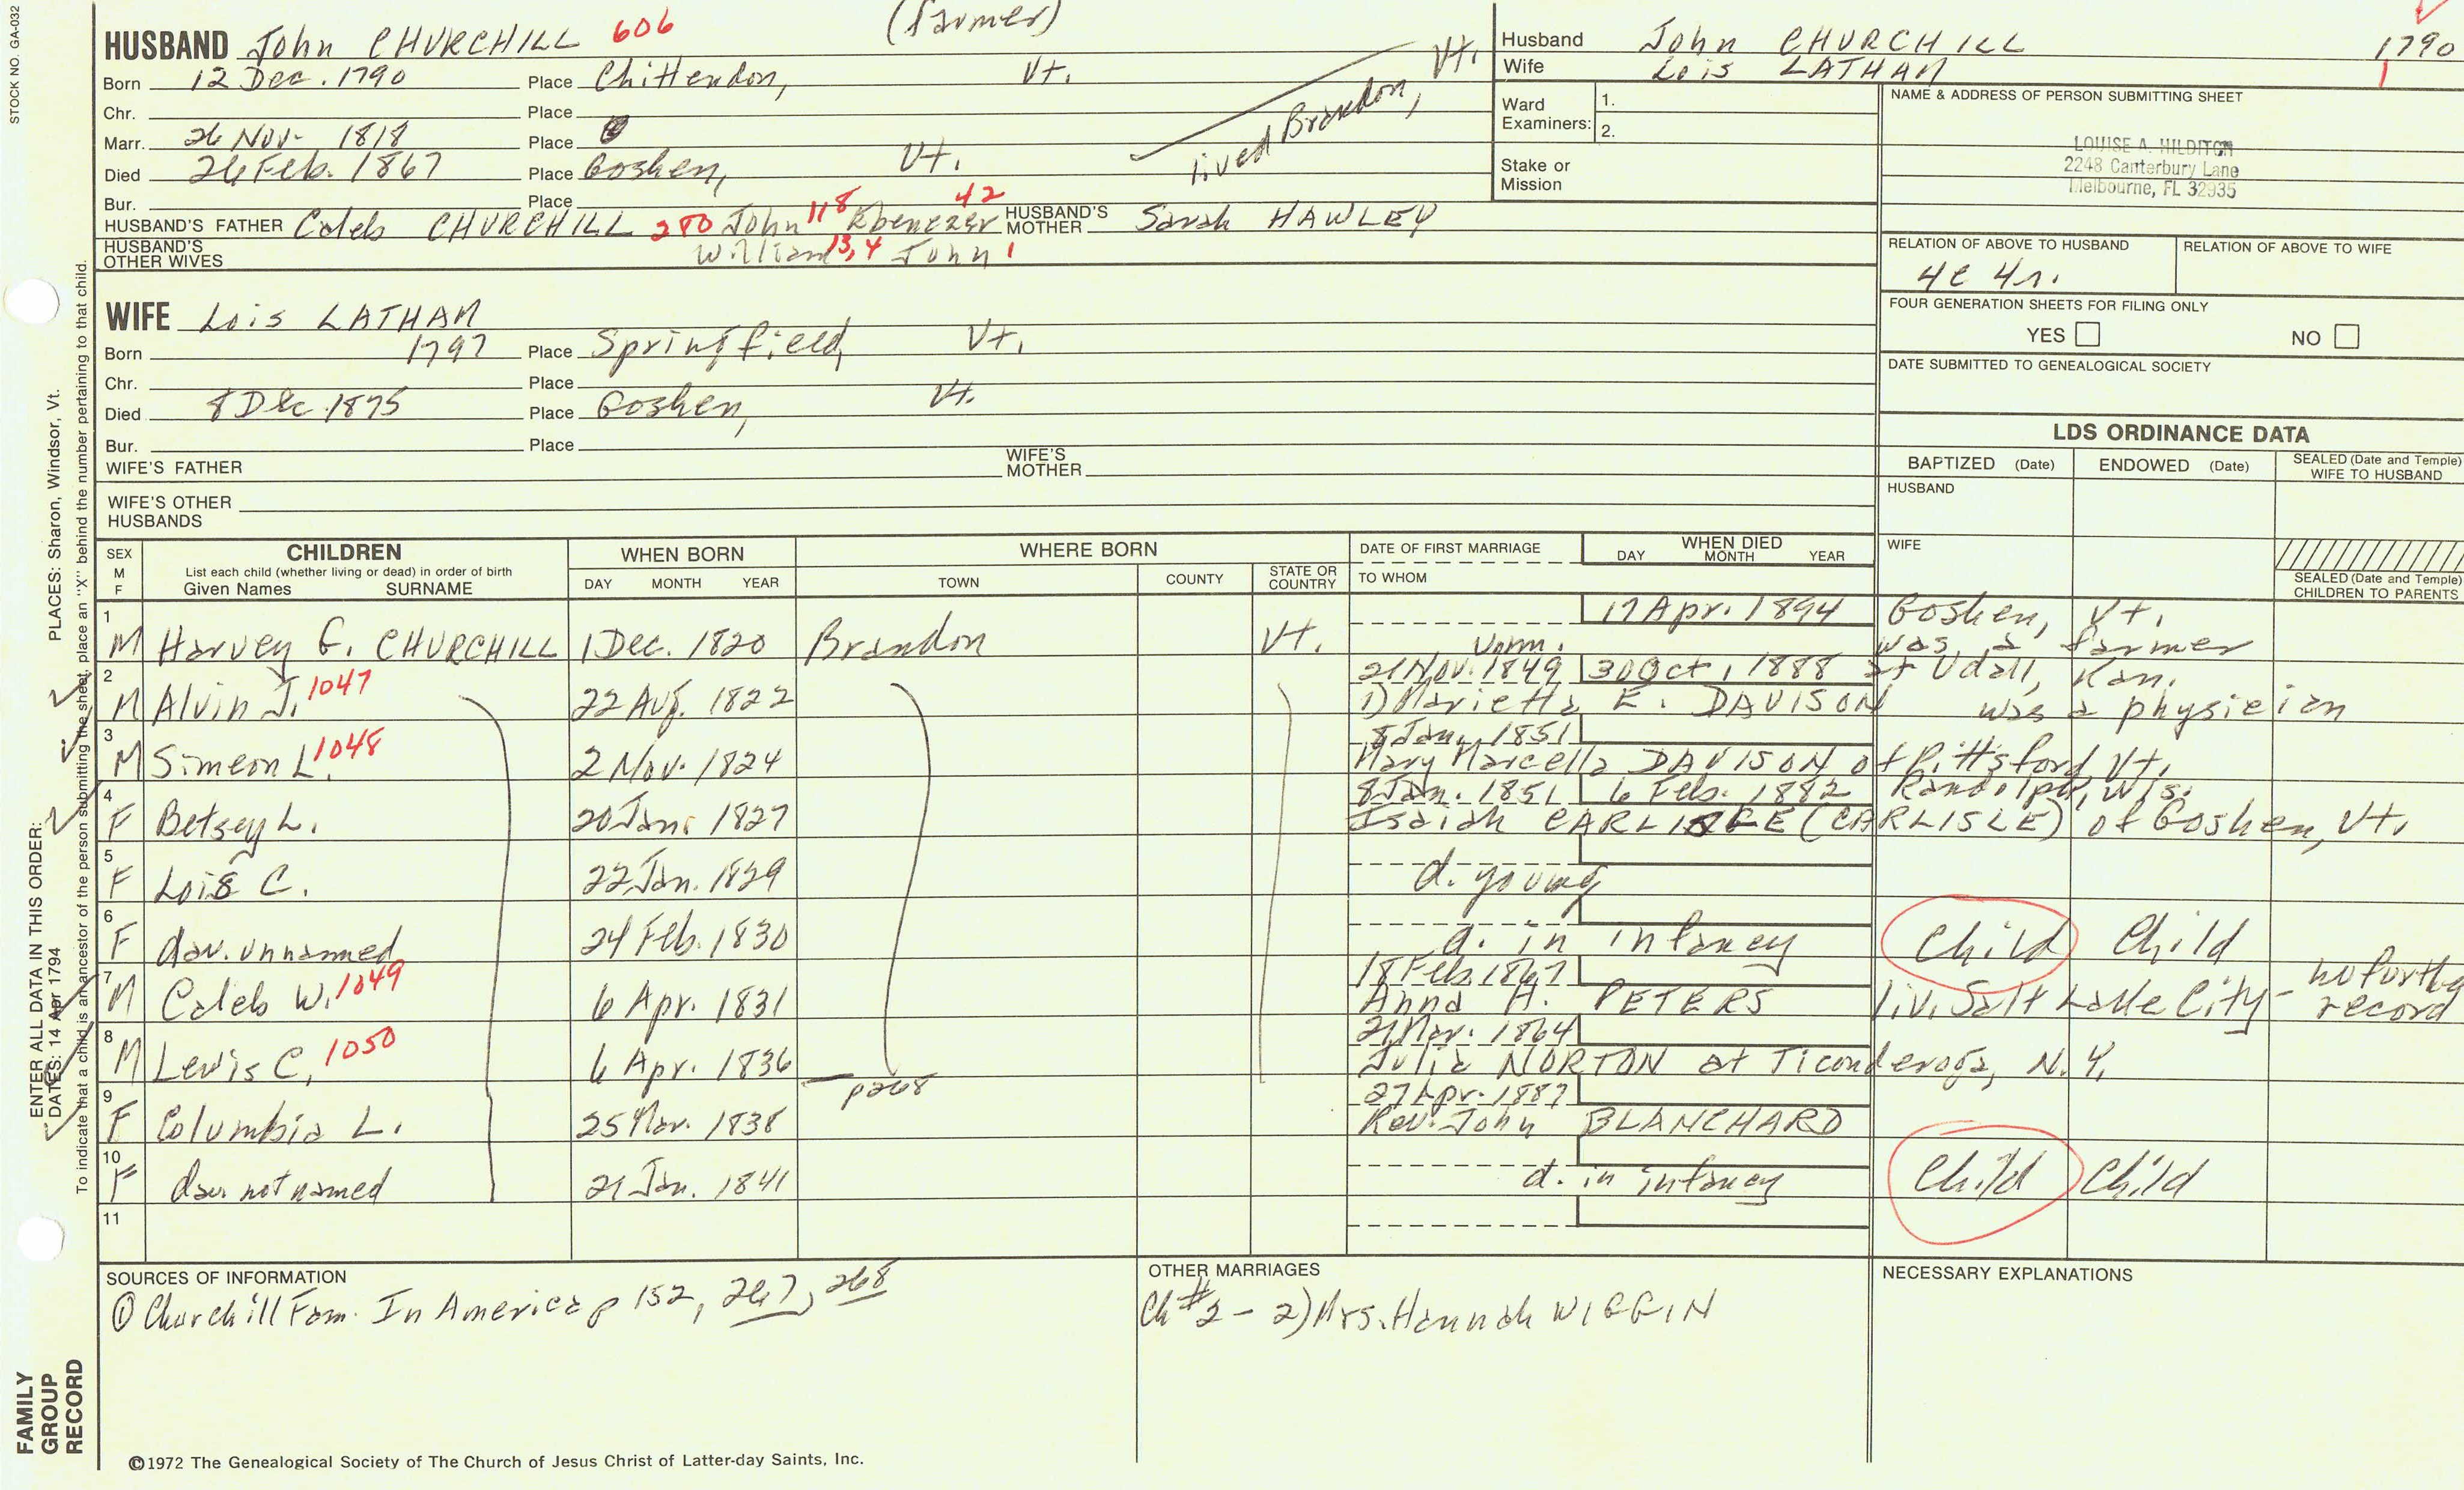 STOCK NO. GA-032
(farmer)
HUSBAND John CHURCHILL 606
Born 12 Dec. 1790 Place Chittendon, Vt.
Chr. Place
Marr. 26 Nov. 1818 Place
Died 26 Feb. 1867 Place Goshen, Vt.
Bur. Place
lived Brandon, Vt.
HUSBAND'S FATHER Caleb CHURCHILL 280 John 118 Ebenezer 42 HUSBAND'S MOTHER Sarah HAWLEY
HUSBAND'S OTHER WIVES William 13,4 John 1
WIFE Lois LATHAM
Born 1797 Place Springfield, Vt.
Chr. Place
Died 8 Dec. 1875 Place Goshen, Vt.
Bur. Place
WIFE'S FATHER WIFE'S MOTHER
WIFE'S OTHER HUSBANDS
Husband John CHURCHILL 1790
Wife Lois LATHAM 1
Ward Examiners: 1.
2.
Stake or Mission
NAME & ADDRESS OF PERSON SUBMITTING SHEET
LOUISE A. HILDITCH
2248 Canterbury Lane
Melbourne, FL 32935
RELATION OF ABOVE TO HUSBAND RELATION OF ABOVE TO WIFE
4c 4r.
FOUR GENERATION SHEETS FOR FILING ONLY
YES NO
DATE SUBMITTED TO GENEALOGICAL SOCIETY
LDS ORDINANCE DATA
BAPTIZED (Date) ENDOWED (Date) SEALED (Date and Temple) WIFE TO HUSBAND
HUSBAND
WIFE
SEALED (Date and Temple) CHILDREN TO PARENTS
SEX M F
CHILDREN
List each child (whether living or dead) in order of birth
Given Names SURNAME
WHEN BORN
DAY MONTH YEAR
WHERE BORN
TOWN COUNTY STATE OR COUNTRY
DATE OF FIRST MARRIAGE
TO WHOM
WHEN DIED
DAY MONTH YEAR
1 17 Apr. 1894 Goshen, Vt.
M Harvey G. CHURCHILL 1 Dec. 1820 Brandon Vt. Unm. was a farmer
2 21 Nov. 1849 30 Oct, 1888 at Udall, Kan.
M Alvin J. 1047 22 Aug. 1822 1) Marietta E. DAVISON was a physician
3 8 Jan. 1851
M Simeon L. 1048 2 Nov. 1824 Mary Marcella DAVISON of Pittsford, Vt.
4 8 Jan. 1851 6 Feb. 1882 Randolph, Wis.
F Betsey L. 20 Jan. 1827 Isaiah (CARLISLE) of Goshen, Vt.
5
F Lois C. 22 Jan. 1829 d. young
6
F dau. unnamed 24 Feb. 1830 d. in infancy Child Child
7 18 Feb. 1867
M Caleb W. 1049 6 Apr. 1831 Anna A. PETERS liv. Salt Lake City - no further record
8 21 Mar. 1864
M Lewis C. 1050 6 Apr. 1836 Julia NORTON at Ticonderoga, N.Y.
p268
9 27 Apr. 1887
F Columbia L. 25 Mar. 1838 Rev. John BLANCHARD
10
F dau not named 21 Jan. 1841 d. in infancy Child Child
11
SOURCES OF INFORMATION
① Churchill Fam. In America p 152, 267, 268
OTHER MARRIAGES
Ch #2 - 2) Mrs. Hannah WIGGIN
NECESSARY EXPLANATIONS
©1972 The Genealogical Society of The Church of Jesus Christ of Latter-day Saints, Inc.
FAMILY GROUP RECORD
ENTER ALL DATA IN THIS ORDER:
DATES: 14 Apr 1794
PLACES: Sharon, Windsor, Vt.
To indicate that a child is an ancestor of the person submitting the sheet, place an "X" behind the number pertaining to that child.